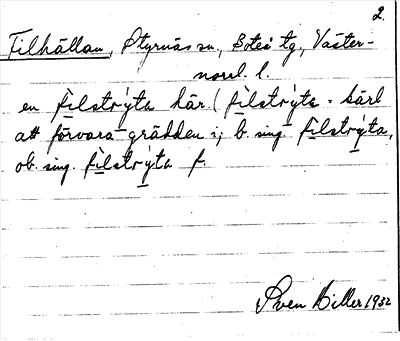 2.
Filhällan, Styrnäs sn., Boteå tg., Väster-
norrl. l.
en filstrýta här. ( filstrýta = kärl
att förvara grädden i; b. sing. filstrýta,
ob. sing. filstrýta f.
Sven Hiller 1932